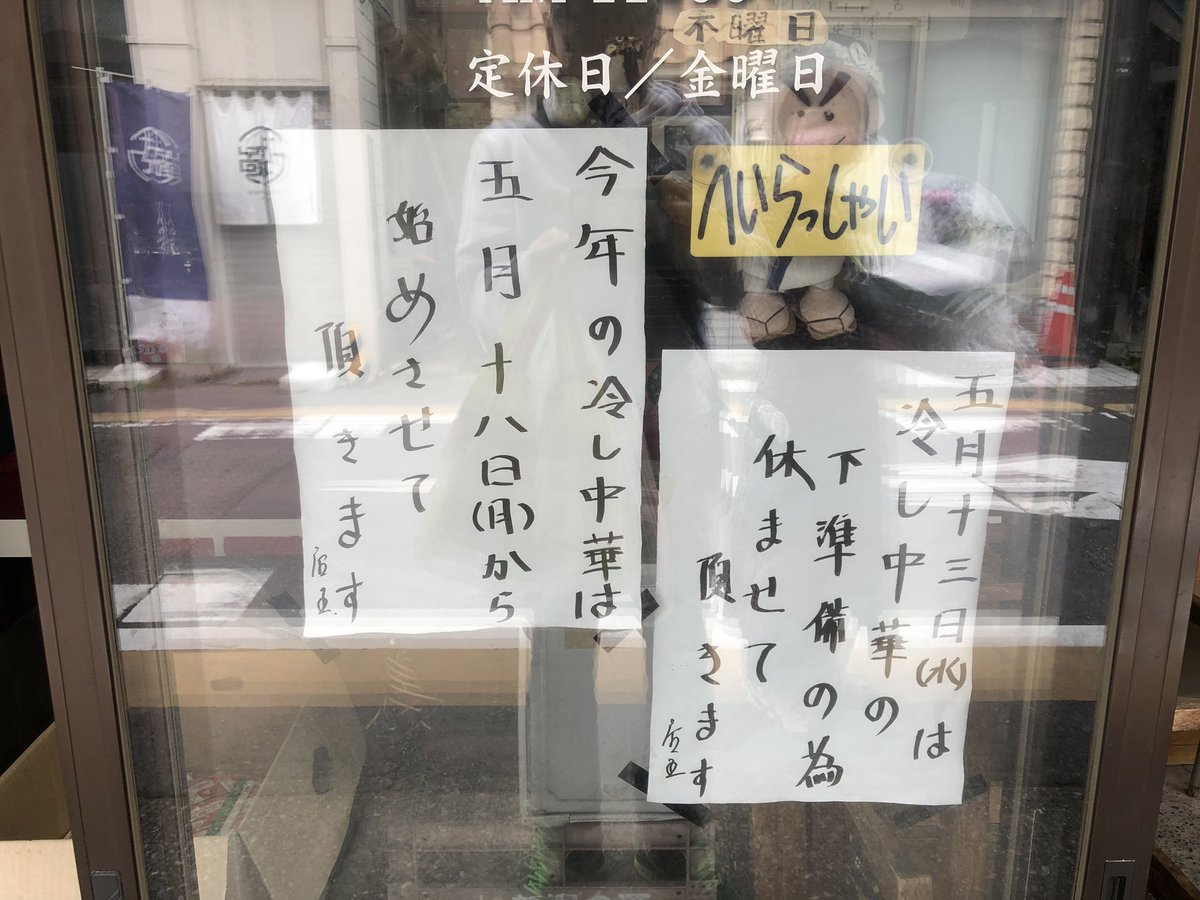 木曜日
定休日／金曜日
へいらっしゃい
五月十三日(水)は
冷し中華の
下準備の為
休ませて
頂きます
店主
今年の冷し中華は
五月十八日(月)から
始めさせて
頂きます
店主